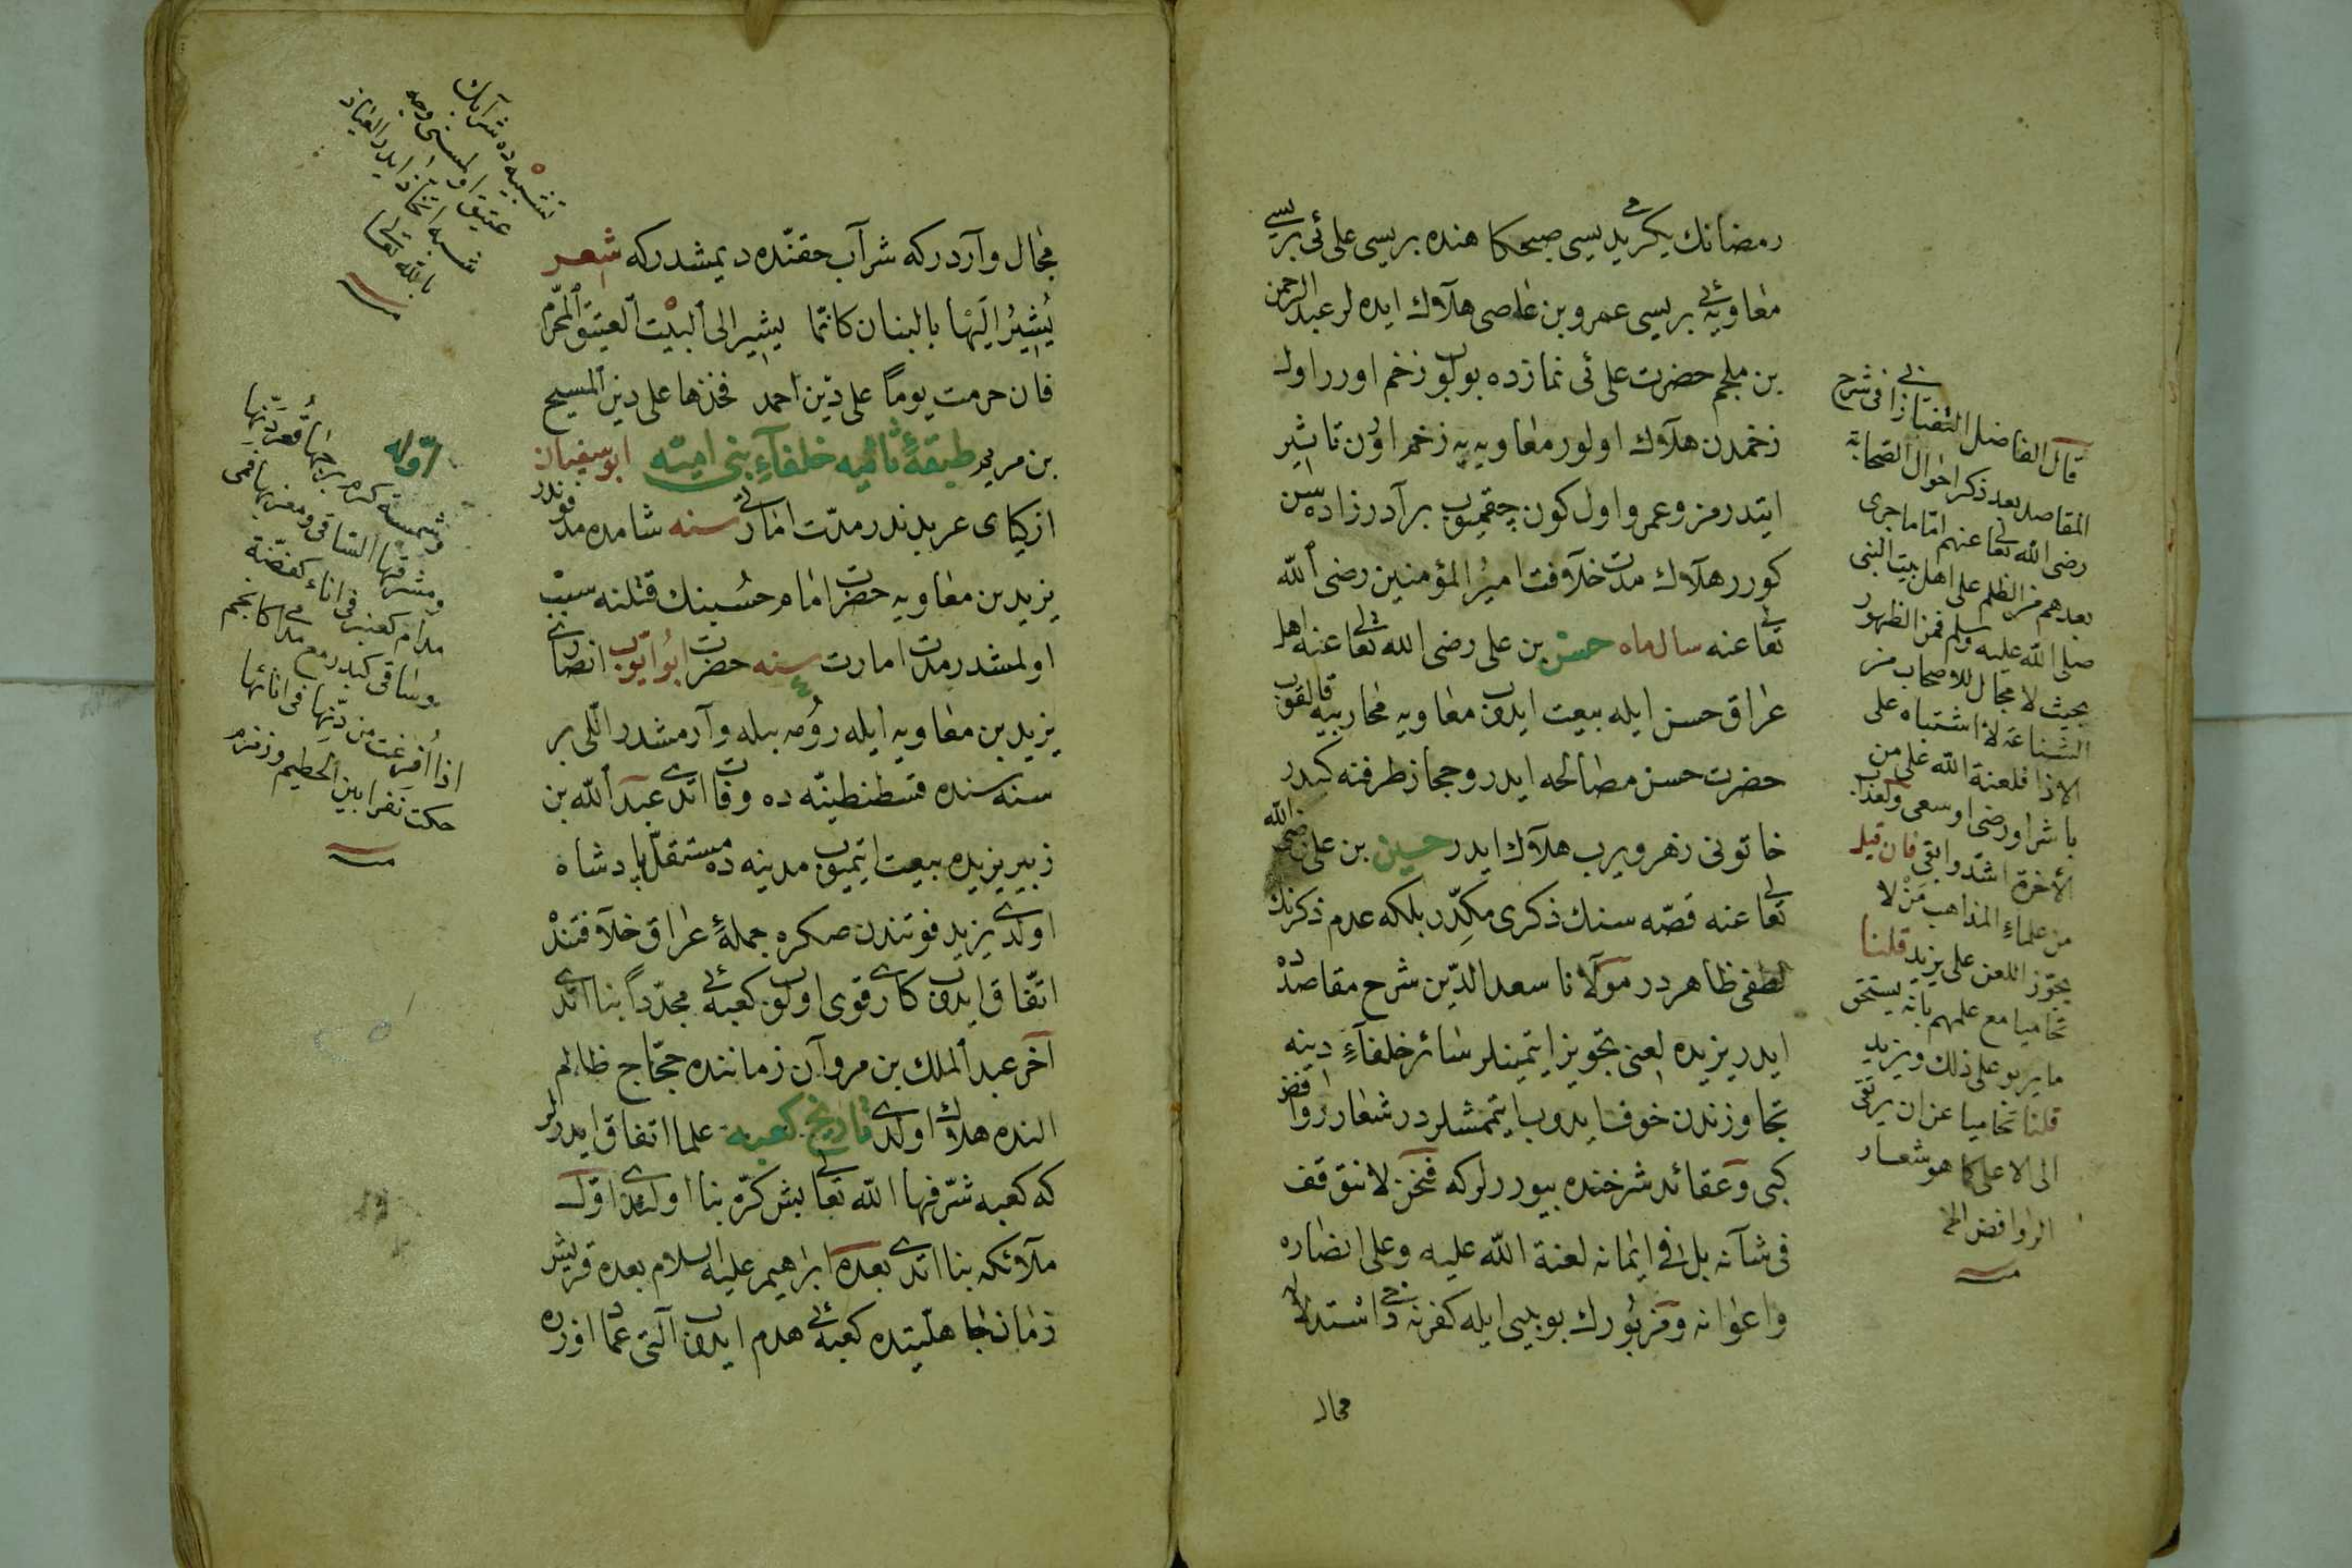 رمضانك يكرمى يديسى صبحكا هنده بريسى على ئى بريسى
معاويه ئى بريسى عمرو بن عاصى هلاك ايده لر عبد الرحمن
بن ملجم حضرت على ئى نمازده بولوب زخم اورر اول
زخمدن هلاك اولور معاويه يه زخم اورن تاثير
ايتدرمز وعمرو اول كون چقميوب برآدر زاده سن
كورر هلاك مدت خلافت امير المؤمنين رضى الله
تعالى عنه سال ماه حسن بن على رضى الله تعالى عنه اهل
عراق حسن ايله بيعت ايدوب معاويه محاربيه قالقوب
حضرت حسن مصالحه ايدر وحجاز طرفنه كيدر
خاتونى زهر ويرب هلاك ايدر حسين بن على رضى الله
تعالى عنه قصه سنك ذكرى مكدر بلكه عدم ذكرنك
لطفى ظاهردر مولانا سعد الدين شرح مقاصدده
ايدر يزيده لعنى تجويز ايتمينلر سائر خلفاء دينه
تجاوزندن خوف ايدوب ايتممشلردر شعار روافض
كبى وعقائد شرحنده بيوررلر كه فنحن لا نتوقف
فى شأنه بل فى ايمانه لعنة الله عليه وعلى انصاره
واعوانه ومزبورك بو بيتى ايله كفرنه دخى استدلاله
مجال
قال الفاضل التفتازانى فى شرح
المقاصد بعد ذكر احوال الصحابة
رضى الله تعالى عنهم اما ما جرى
بعدهم من الظلم على اهل بيت النبى
صلى الله عليه وسلم فمن الظهور
بحيث لا مجال للاصحاب من
الشناعة لا اشتباه على
الاذا فلعنة الله على من
باشر او رضى او سعى ولعذاب
الأخرة اشد وابقى فان قيل
من علماء المذاهب من لا
يجوز اللعن على يزيد قلنا
تحاميا مع علمهم بانه يستحق
ما يربو على ذلك ويزيد
قلنا تحاميا عن ان يرتقى
الى الاعلى كما هو شعار
الروافض الخ
مجال وآردر كه شراب حقنده ديمشدر كه شعر
يشير اليها بالبنان كانما يشير الى البيت العتيق المحرم
فان حرمت يوما على دين احمد فخذها على دين المسيح
بن مريم طبقهٔ ثانيه خلفاء بنى اميه ابو سفيان
ازكياى عربدندر مدت امارتى سنه شامده مدفوندر
يزيد بن معاويه حضرت امام حسينك قتلنه سبب
اولمشدر مدت امارت سنه ٤ حضرت ابو ايوب انصارى
يزيد بن معاويه ايله رومه بيله وآرمشدر اللى بر
سنه سنده قسطنطينيه ده وفات اتدى عبد الله بن
زبير يزيده بيعت ايتميوب مدينه ده مستقل پادشاه
اولدى يزيد فوتندن صكره جملهٔ عراق خلافتنده
اتفاق ايدوب كارى قوى اولوب كعبه ئى مجددا بنا اتدى
آخر عبد الملك بن مروان زماننده حجاج ظالم
النده هلاك اولدى تاريخ كعبه علما اتفاق ايدرلر
كه كعبه شرفها الله تعالى بش كره بنا اولندى اول
ملائكه بنا اتدى بعده ابراهيم عليه السلام بعده قريش
زمان جاهليتده كعبه ئى هدم ايدوب التى عماد اوزره
تشبيه ده شرابك
عتيق اولمسنى وجه
شبه اتخاذ ايدر العياذ
بالله تعالى
اوله
وشمسة كرم برجها قعر دنها
ومشرقها الساقى ومغربها فمى
مدام كعنبر فى اناء كفضة
وساقى كبدر مع مدام كانجم
اذا افرغت من دنها فى انائها
حكت نفرا بين الحطيم وزمزم